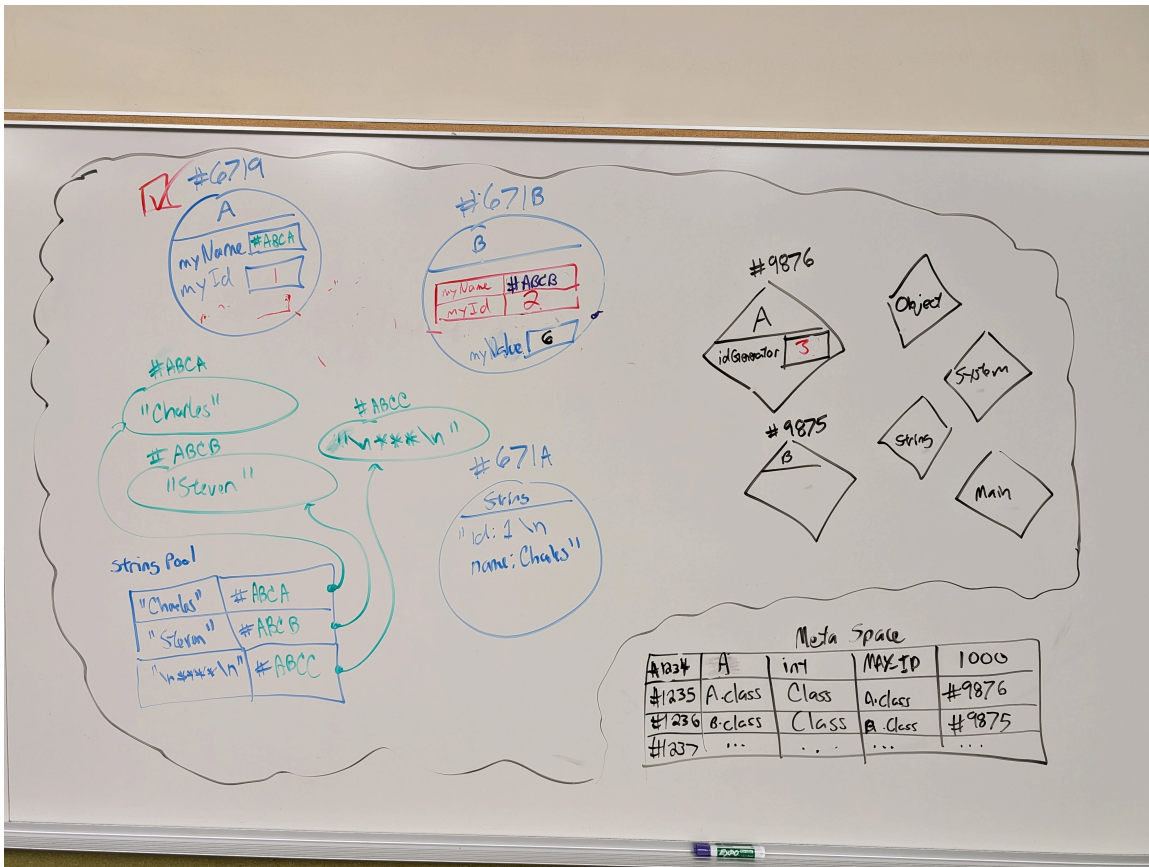 #6719
A
myName #ABCA
myId 1
#671B
B
myName #ABCB
myId 2
myValue 6
#ABCA
"Charles"
#ABCB
"Steven"
#ABCC
"\n***\n"
#671A
String
"id: 1 \n
name: Charles"
String Pool
"Charles" #ABCA
"Steven" #ABCB
"\n****\n" #ABCC
#9876
A
idGenerator 3
#9875
B
Object
System
String
Main
Meta Space
#1234 A int MAX_ID 1000
#1235 A.class Class A.class #9876
#1236 B.class Class B.class #9875
#1237 ... ... ... ...
EXPO